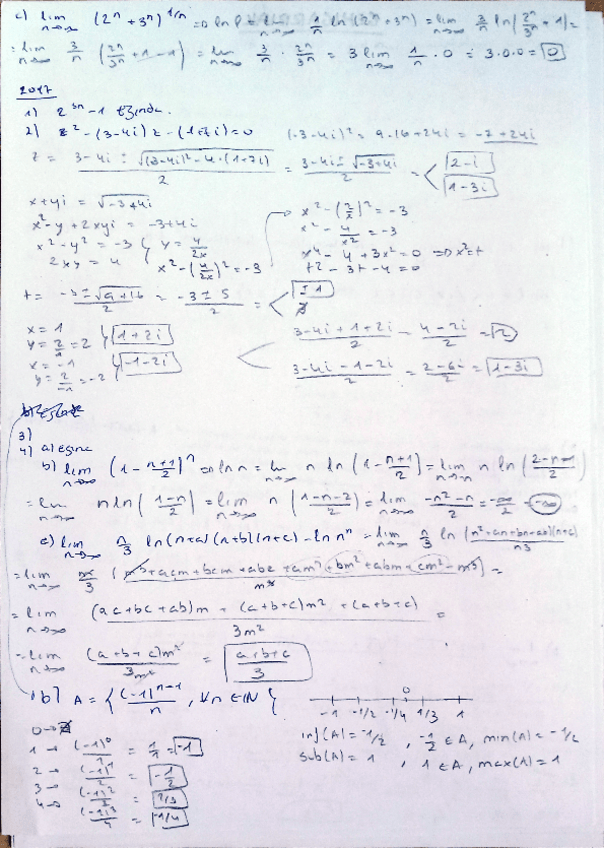 c) lim n→∞ (2^n + 3^n)^1/n => ln l = lim n→∞ 1/n ln (2^n + 3^n) = lim n→∞ 3/n ln (2^n/3^n + 1) =
= lim n→∞ 3/n (2^n/3^n + 1 - 1) = lim n→∞ 3/n · 2^n/3^n = 3 lim n→∞ 1/n · 0 = 3·0·0 = 0
2017
1) 2^3n - 1
2) z² - (3-4i) z - (1+7i) = 0 (-3-4i)² = 9-16+24i = -7+24i
z = 3-4i ± √(3-4i)² - 4·(1+7i) / 2 = 3-4i ± √-3+4i / 2 = < 2-i
1-3i
x+yi = √-3+4i
x² - y + 2xyi = -3+4i
x² - y² = -3
2xy = 4
y = 4/2x
x² - (4/2x)² = -3
x² - (2/x)² = -3
x² - 4/x² = -3
x⁴ - 4 + 3x² = 0 => x² = t
t² - 3t - 4 = 0
t = -3 ± √9+16 / 2 = -3 ± 5 / 2 = < ±1
x = 1
y = 2/1 = 2 } 1+2i
x = -1
y = 2/-1 = -2 } -1-2i
3-4i+1+2i / 2 = 4-2i / 2 = 2
3-4i-1-2i / 2 = 2-6i / 2 = 1-3i
3)
4) a)
b) lim n→∞ (1 - n+1/2)^n => ln n = lim n→∞ n ln (1 - n+1/2) = lim n→∞ n ln (2-n-∞/2)
= lim n→∞ n ln (1-n/2) = lim n→∞ n (1-n-2/2) = lim n→∞ -n²-n/2 = -∞/2 = -∞
c) lim n→∞ n/3 ln (n+a)(n+b)(n+c) - ln n^n = lim n→∞ n/3 ln (n²+an+bn+ab)(n+c)/n3
= lim n→∞
= lim n→∞ (ac+bc+ab)n + (a+b+c)n² + (a+b+c) / 3n² =
= lim n→∞ (a+b+c)n² / 3n² = a+b+c / 3
b) A = { (-1)^n-1 / n , ∀n ∈ IN }
0
-1 -1/2 -1/4 1/3 1
0 →
1 → (-1)^0 / 1 = 1/1 = -1
2 → (-1)^1 / 2 = -1/2
3 → (-1)^2 = 1/3
4 → (-1)^3 / 4 = 1/4
inf(A) = -1/2 , -1/2 ∈ A, min(A) = -1/2
sub(A) = 1 , 1 ∈ A, max(A) = 1